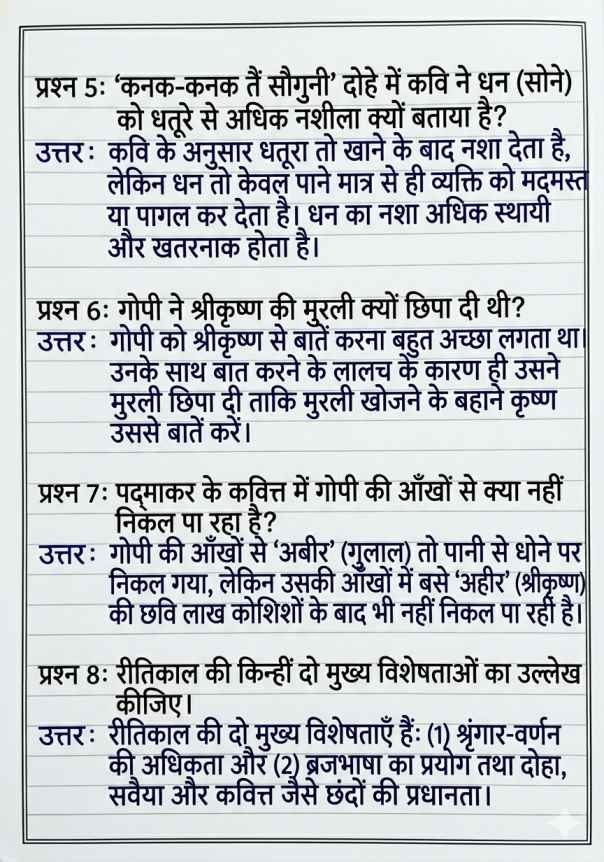 प्रश्न 5: ‘कनक-कनक तैं सौगुनी’ दोहे में कवि ने धन (सोने)
को धतूरे से अधिक नशीला क्यों बताया है?
उत्तर: कवि के अनुसार धतूरा तो खाने के बाद नशा देता है,
लेकिन धन तो केवल पाने मात्र से ही व्यक्ति को मदमस्त
या पागल कर देता है। धन का नशा अधिक स्थायी
और खतरनाक होता है।
प्रश्न 6: गोपी ने श्रीकृष्ण की मुरली क्यों छिपा दी थी?
उत्तर: गोपी को श्रीकृष्ण से बातें करना बहुत अच्छा लगता था।
उनके साथ बात करने के लालच के कारण ही उसने
मुरली छिपा दी ताकि मुरली खोजने के बहाने कृष्ण
उससे बातें करें।
प्रश्न 7: पद्माकर के कवित्त में गोपी की आँखों से क्या नहीं
निकल पा रहा है?
उत्तर: गोपी की आँखों से ‘अबीर’ (गुलाल) तो पानी से धोने पर
निकल गया, लेकिन उसकी आँखों में बसे ‘अहीर’ (श्रीकृष्ण)
की छवि लाख कोशिशों के बाद भी नहीं निकल पा रही है।
प्रश्न 8: रीतिकाल की किन्हीं दो मुख्य विशेषताओं का उल्लेख
कीजिए।
उत्तर: रीतिकाल की दो मुख्य विशेषताएँ हैं: (1) श्रृंगार-वर्णन
की अधिकता और (2) ब्रजभाषा का प्रयोग तथा दोहा,
सवैया और कवित्त जैसे छंदों की प्रधानता।